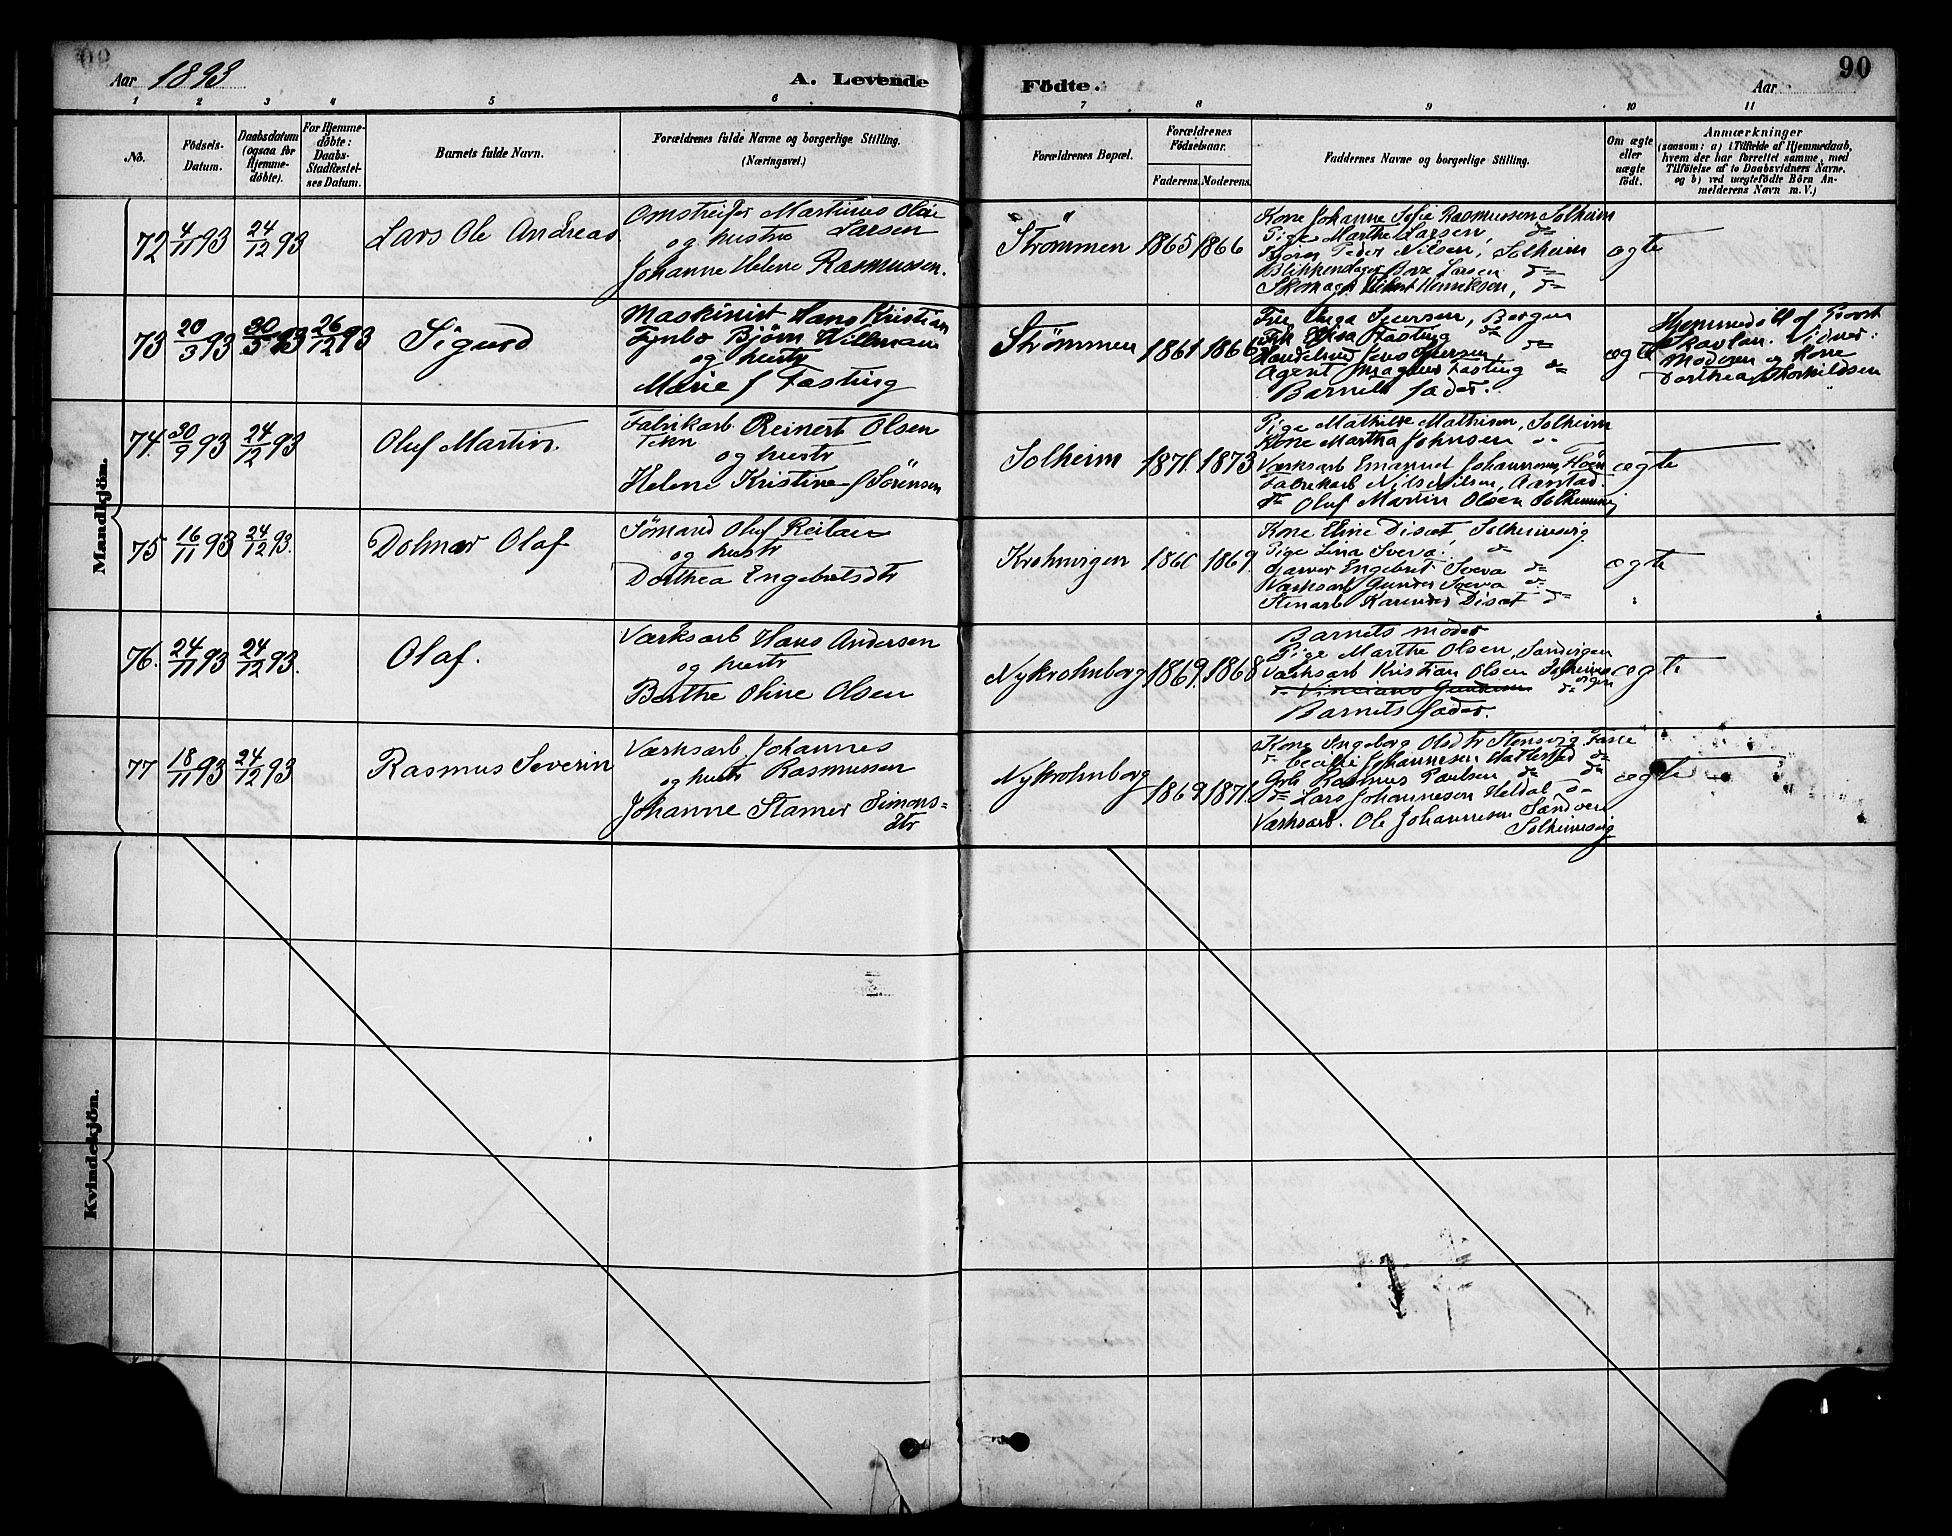 Aar 1893
A. Levende
Födte.
Aar
90
1 2 3 4 5 6 7 8 9 10 11
No.
Födsels-
Datum.
Daabsdatum
(ogsaa for
Hjemme-
döbte).
For Hjemme-
döbte:
Daabs-
Stadfæstel-
ses Datum.
Barnets fulde Navn.
Forældrenes fulde Navne og borgerlige Stilling.
(Næringsvei.)
Forældrenes Bopæl.
Forældrenes
Födselsaar.
Faderens. Moderens.
Faddernes Navne og borgerlige Stilling.
Om ægte
eller
uægte
födt.
Anmærkninger
(saasom: a) i Tilfælde af Hjemmedaab,
hvem der har forrettet samme, med
Tilföielse af to Daabsvidners Navne.
og b) ved uægtefödte Börn An-
melderens Navn m. V.)
Mandkjön.
72 4/11 93 24/12 93
Lars Ole Andreas
Martinus
og hustru Larsen
Johanne Helene Rasmussen.
Strømmen 1865 1866
Kone Johanne Sofie Rasmussen Solheim
Pige Marthe Larsen, do
Peder Nilsen, Solheim
Larsen do
Henriksen, do
ægte
73 20/3 93 30/3 93 26/12 93
Sigurd
Maskinist Hans Kristian
Fynbo Bjørn Willmann
og hustr
Marie J Fasting
Strømmen 1861 1866
Fru Inga Iversen, Bergen
Fasting do
Iversen, do
Agent Magnus Fasting do
Barnets fader.
ægte
Hjemmedöbt af Provst
Skavlan. Vidner:
Moderen og Kone
Dorthea Thorkildsen
74 30/9 93 24/12 93
Oluf Martin
Fabrikarb Reinert Olsen
og hustr
Helene Kristine J Sörensen
Solheim 1871. 1873
Pige Mathilde Mathisen, Solheim
Kone Martha Johnsen
Værksarb Emanuel Johannesen,
Fabrikarb Nils Nilsen, Aarstad.
do Oluf Martin Olsen
ægte
75 16/11 93 24/12 93.
Olaf
Sömand Oluf Reitan
og hustr
Dorthea Engebretsdtr
Krohnvigen 186 1869.
Kone Eline Diset, Solheimsvig
Pige Lina do
Engebret do
Værksarb Gunder do
Stenarb Diset do
ægte
76. 24/11 93 24/12 93.
Olaf.
Værksarb Hans Andersen
og hustr
Berthe Oline Olsen
Nykrohnborg 1869. 1868
Barnets moder
Pige Marthe Olsen, Sandvigen
Værksarb Kristian Olsen Solheims
vigen
do
Barnets fader.
ægte
77 18/11 93 24/12 93
Rasmus Severin
Værksarb Johannes
og hustr Rasmussen
Johanne Stamer Simons-
dtr
Nykrohnborg 1869 1871.
Kone Ingeborg Olsdtr Stensvig,
Johannesen do
Grb Rasmus Paulsen do do
do Lars Johannesen Heldal do
Værksarb. Ole Johannesen
Solheimsvig
ægte
Kvindekjön.